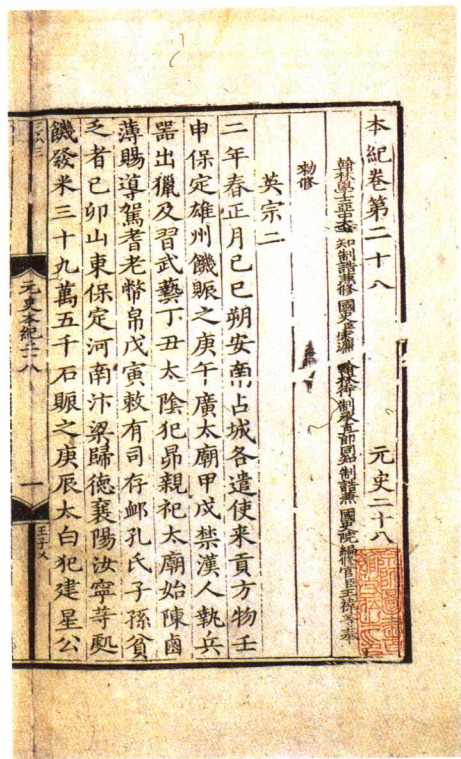 本紀卷第二十八 元史二十八
翰林學士亞中大夫知制誥兼修國史臣宋濂 翰林待制承直郎同知制誥兼國史院編修官臣王禕等奉
勑修
英宗二
二年春正月己巳朔安南占城各遣使來貢方物壬
申保定雄州饑賑之庚午廣太廟甲戌禁漢人執兵
器出獵及習武藝丁丑太陰犯昴親祀太廟始陳鹵
薄賜導駕耆老幣帛戊寅敕有司存卹孔氏子孫貧
乏者己卯山東保定河南汴梁歸德襄陽汝寧等處
饑發米三十九萬五千石賑之庚辰太白犯建星公
元史本紀二十八
一